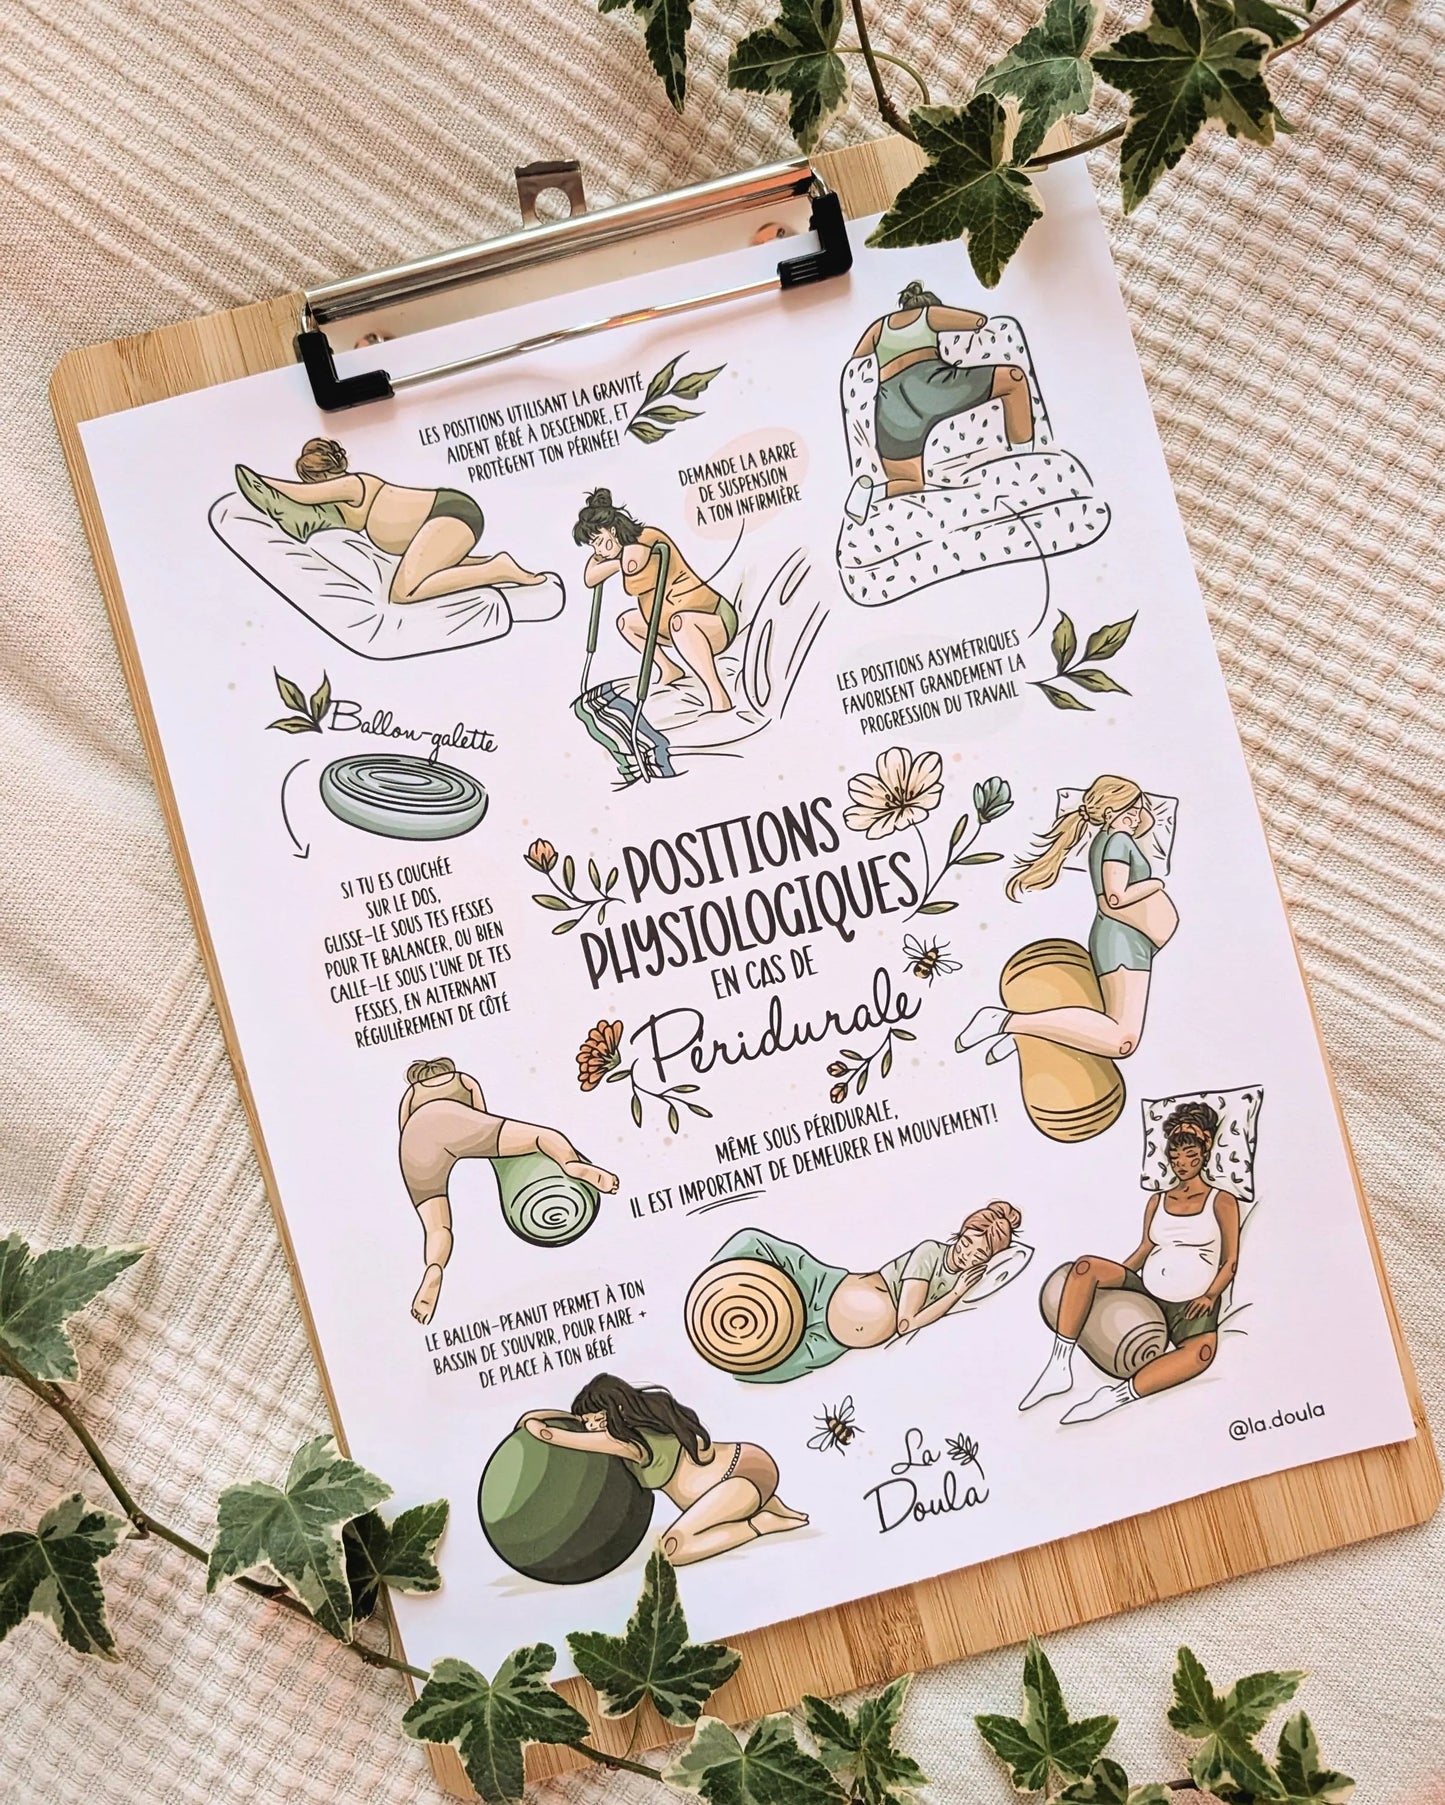 LES POSITIONS UTILISANT LA GRAVITÉ
AIDENT BÉBÉ À DESCENDRE, ET
PROTÈGENT TON PÉRINÉE!
DEMANDE LA BARRE
DE SUSPENSION
À TON INFIRMIÈRE
LES POSITIONS ASYMÉTRIQUES
FAVORISENT GRANDEMENT LA
PROGRESSION DU TRAVAIL
Ballon-galette
SI TU ES COUCHÉE
SUR LE DOS,
GLISSE-LE SOUS TES FESSES
POUR TE BALANCER, OU BIEN
CALLE-LE SOUS L'UNE DE TES
FESSES, EN ALTERNANT
RÉGULIÈREMENT DE CÔTÉ
POSITIONS
PHYSIOLOGIQUES
EN CAS DE
Péridurale
MÊME SOUS PÉRIDURALE,
IL EST IMPORTANT DE DEMEURER EN MOUVEMENT!
LE BALLON-PEANUT PERMET À TON
BASSIN DE S'OUVRIR, POUR FAIRE +
DE PLACE À TON BÉBÉ
La
Doula
@la.doula